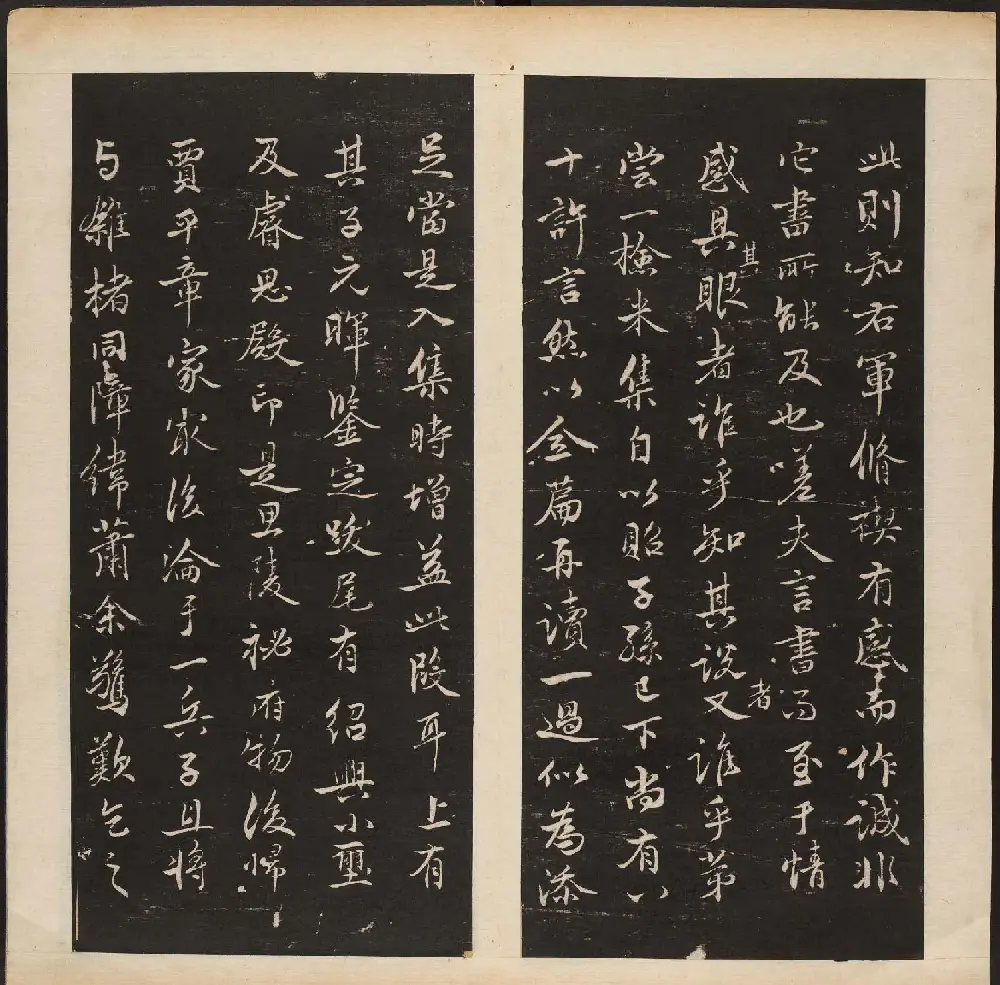 此則知右軍脩禊有感而作誠非
它書所能及也嗟夫言書而至于情
感具其眼者誰乎知其說者又誰乎第
嘗一檢米集自以貽子孫已下尚有八
十許言然以全篇再讀一過似為添
足當是入集時增益此段耳上有
其子元暉鑒定跋尾有紹興小璽
及睿思殿印是思陵祕府物後歸
賈平章家家後淪于一兵子且將
与雜楮同障緯蕭余驚歎乞之